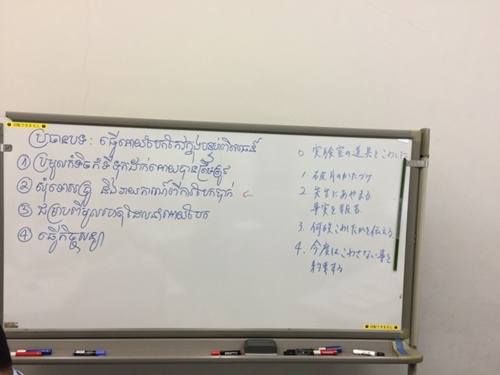 ប្រធានបទ: ធ្វើអោយបែកកែវក្នុងបន្ទប់ពិសោធន៍
① ប្រមូលកំទេចកំទីទុកដាក់អោយបានត្រឹមត្រូវ
② សុំទោសគ្រូ និងរាយការណ៍ពីការបែកបាក់
③ ជម្រាបពីមូលហេតុដែលនាំអោយបែក
④ ធ្វើកិច្ចសន្យា
実験室の道具をこわした
1. 破片のかたづけ
2. 先生にあやまる
事実を報告
3. 何故こわしたかを伝える
4. 今度はこわさない事を
約束する